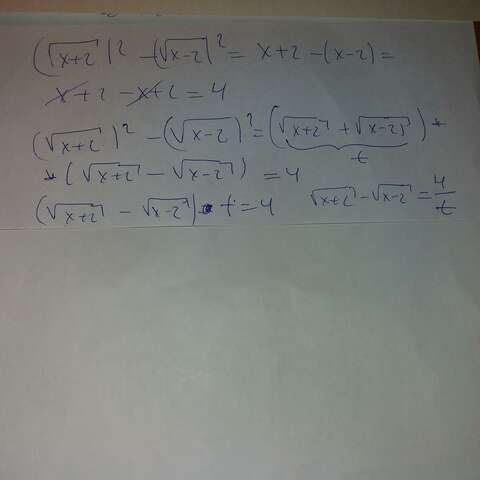 (√x+2)² - (√x-2)² = x+2-(x-2)=
x+2-x+2=4
(√x+2)² - (√x-2)² = (√x+2 + √x-2) *
t
* (√x+2 - √x-2) = 4
(√x+2 - √x-2) · t = 4 √x+2 - √x-2 = 4/t